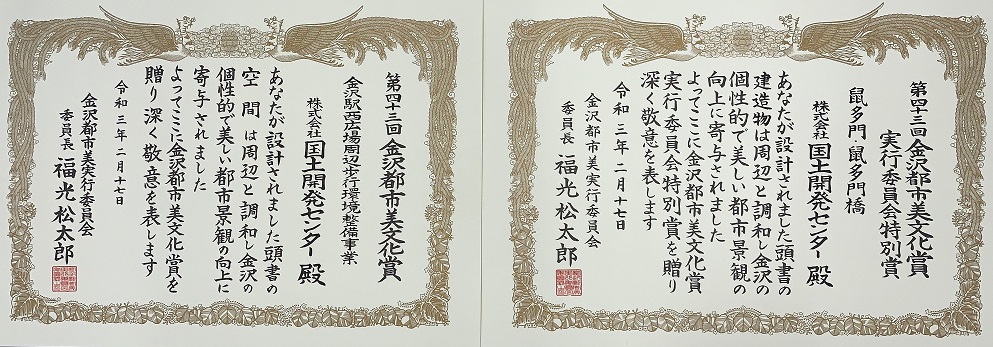 第四十三回 金沢都市美文化賞
金沢駅西広場周辺歩行環境整備事業
株式会社 国土開発センター 殿
あなたが設計されました頭書の
空間は周辺と調和し金沢の
個性的で美しい都市景観の向上に
寄与されました
よってここに金沢都市美文化賞を
贈り深く敬意を表します
令和三年二月十七日
金沢都市美実行委員会
委員長 福光松太郎
第四十三回 金沢都市美文化賞
実行委員会特別賞
鼠多門・鼠多門橋
株式会社 国土開発センター 殿
あなたが設計されました頭書の
建造物は周辺と調和し金沢の
個性的で美しい都市景観の
向上に寄与されました
よってここに金沢都市美文化賞
実行委員会特別賞を贈り
深く敬意を表します
令和三年二月十七日
金沢都市美実行委員会
委員長 福光松太郎